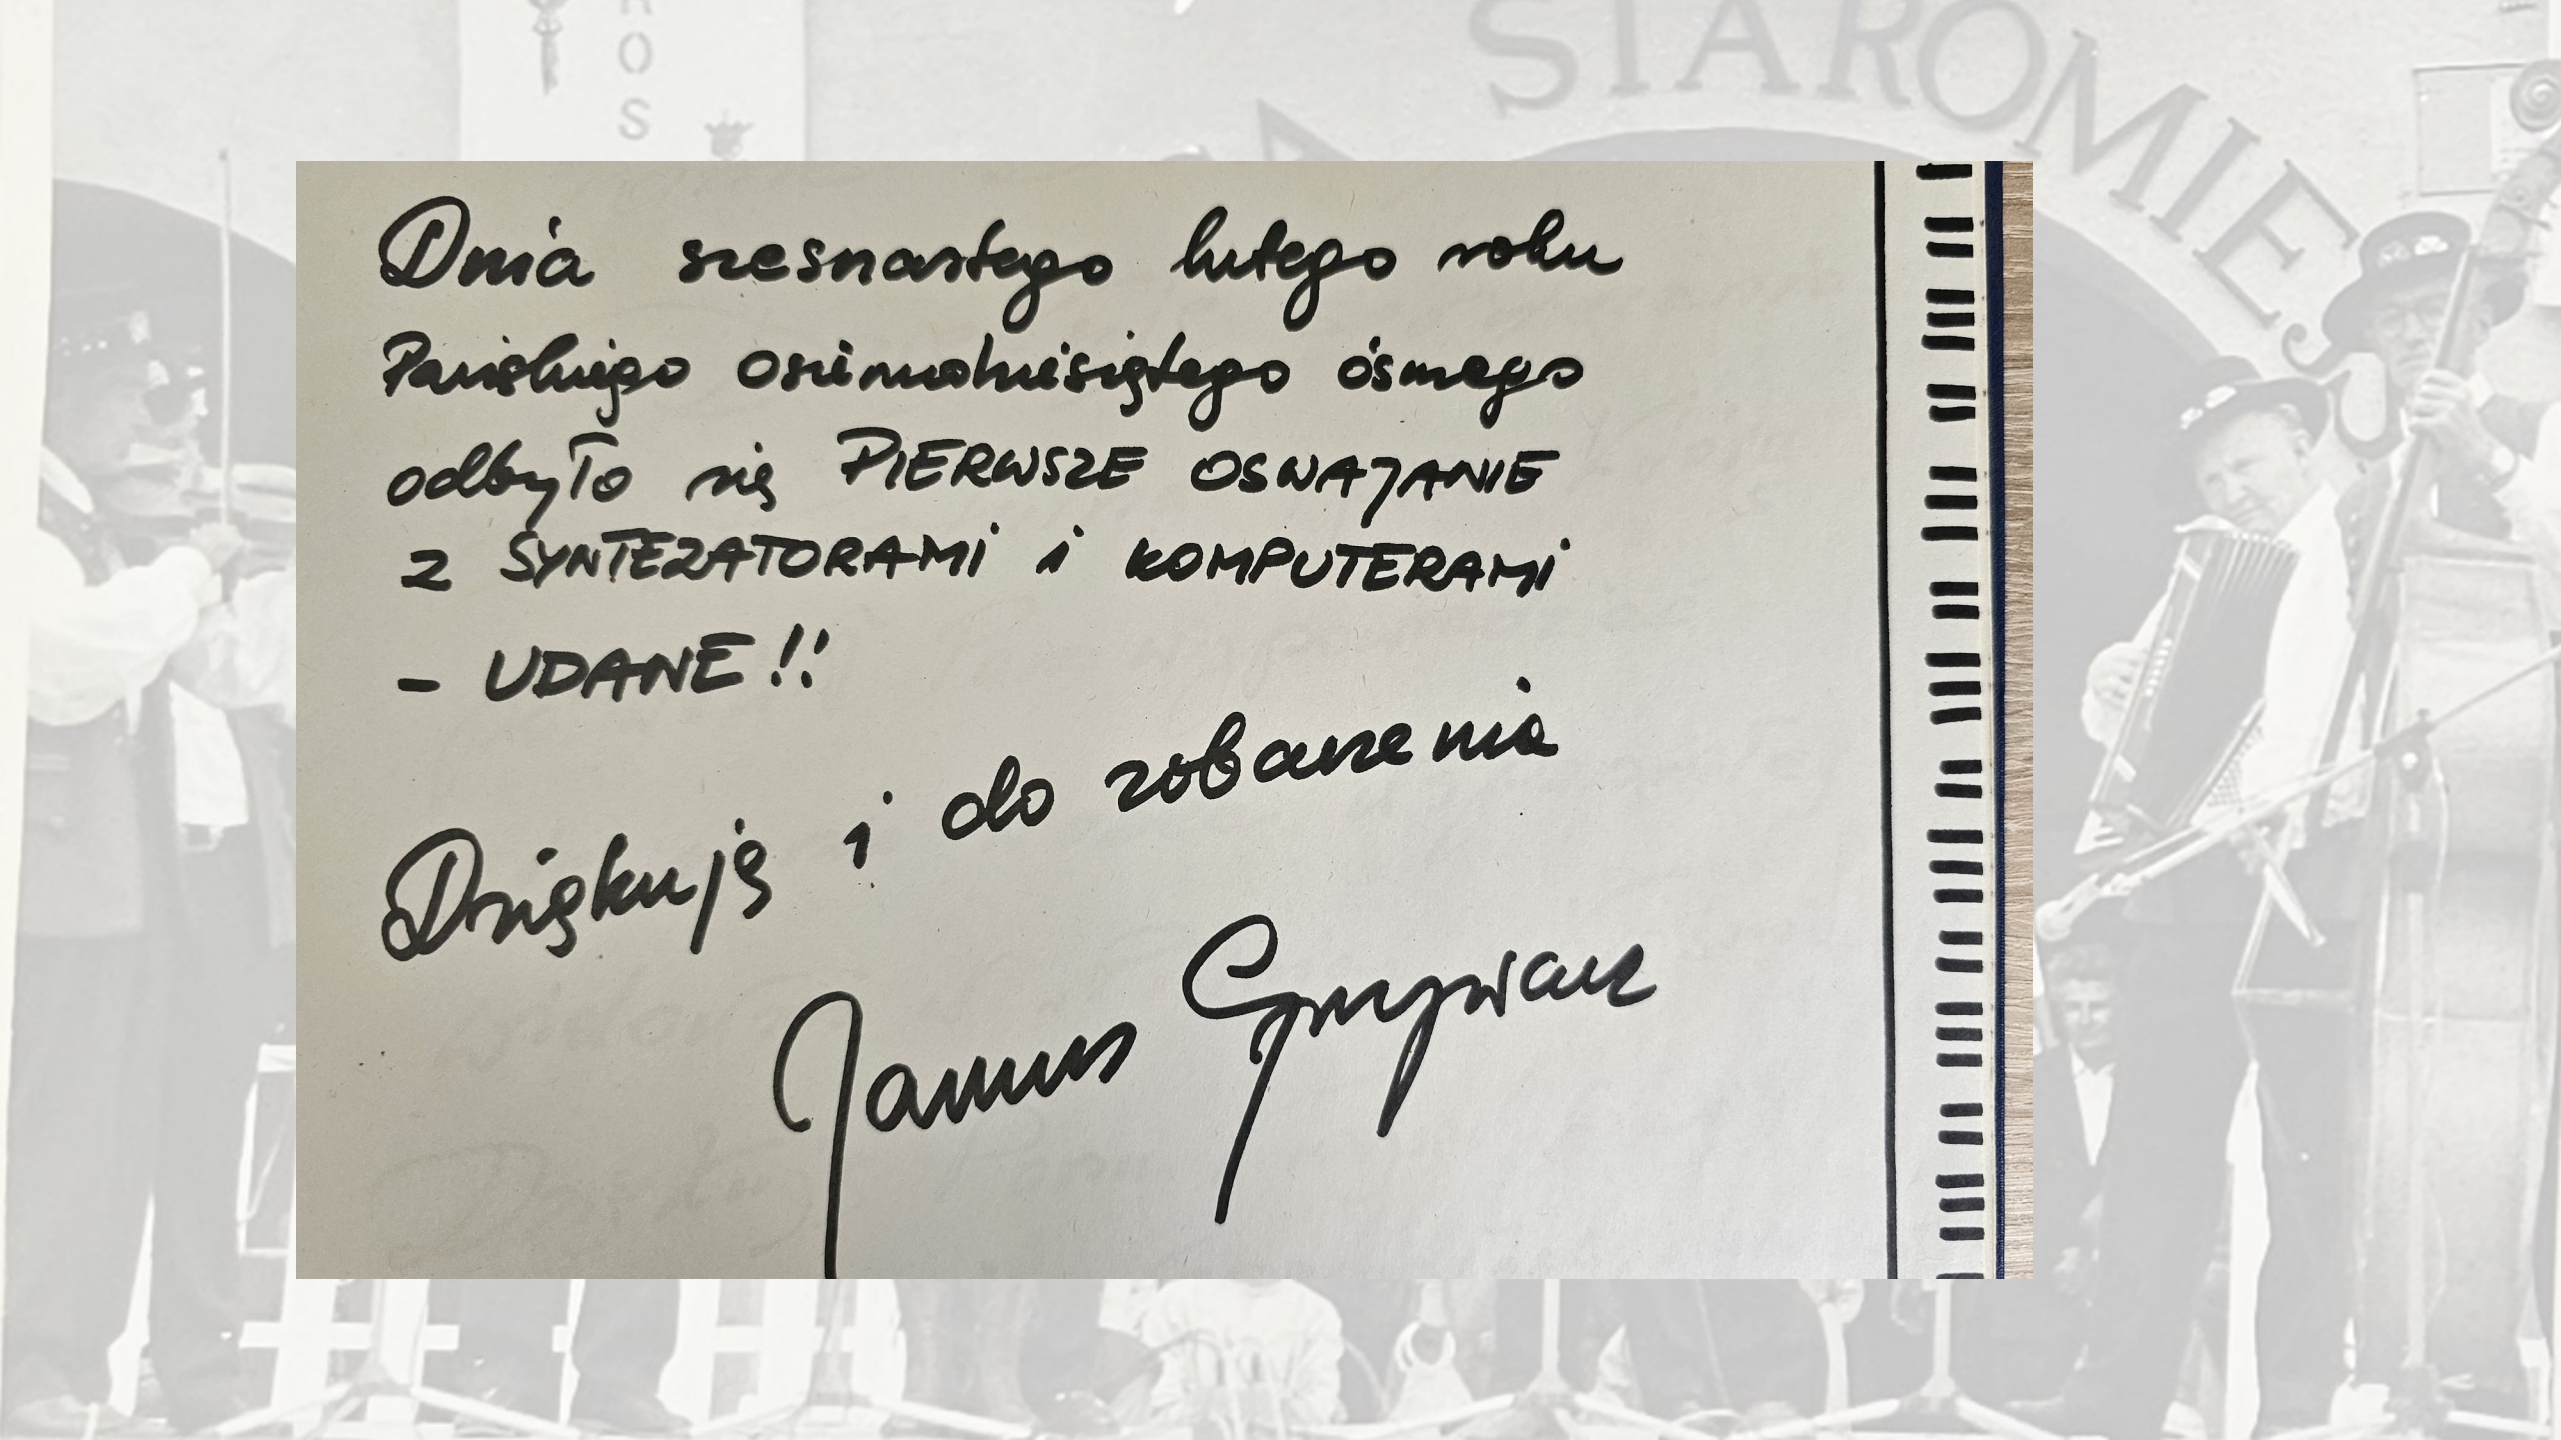 ROS
STAROMIEJS
Dnia szesnastego lutego roku
Pańskiego osiemdziesiątego ósmego
odbyło się PIERWSZE OSWAJANIE
Z SYNTEZATORAMI i KOMPUTERAMI
- UDANE!!
Dziękuję i do zobaczenia
Janusz Grzywacz